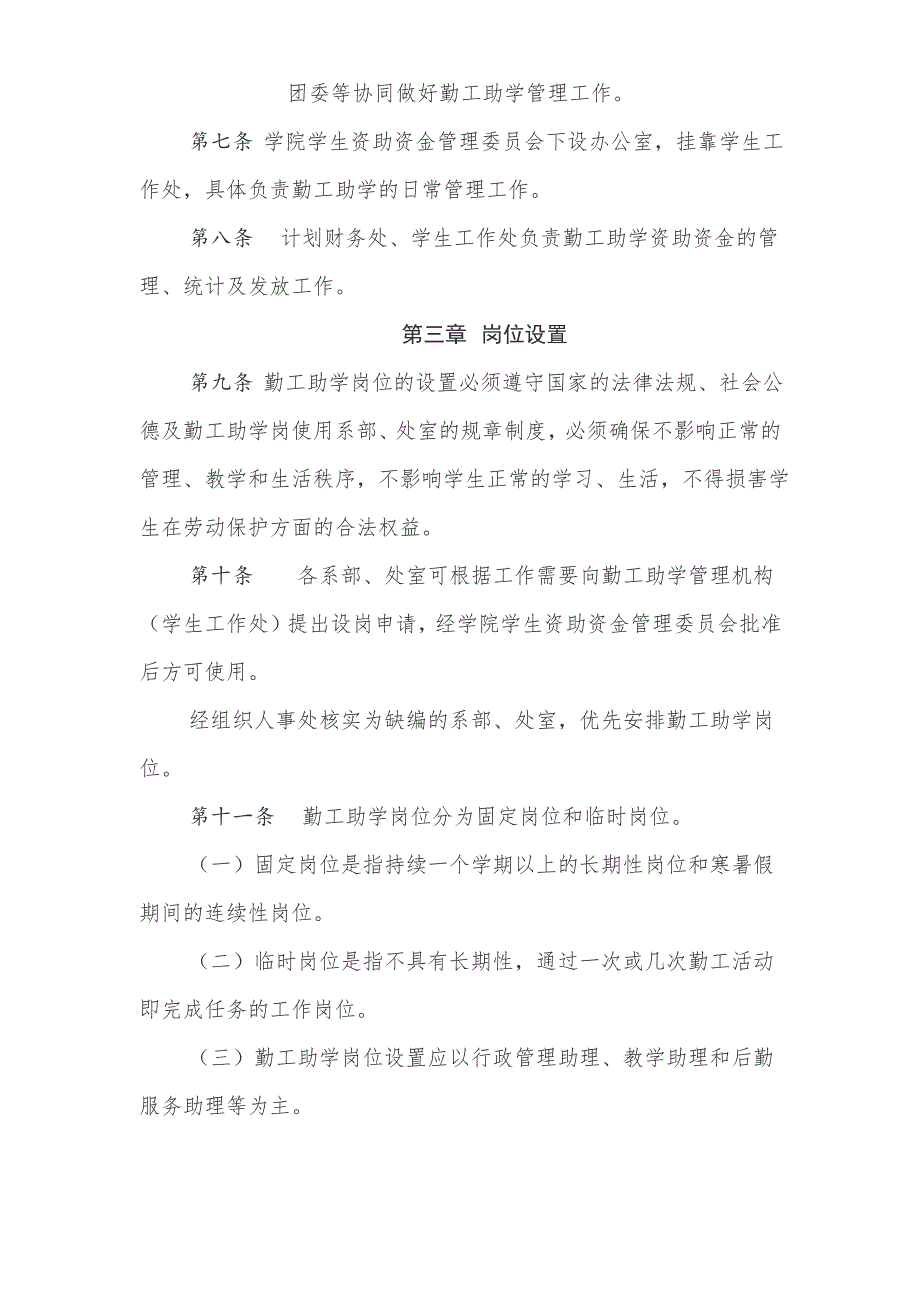 团委等协同做好勤工助学管理工作。
第七条 学院学生资助资金管理委员会下设办公室，挂靠学生工
作处，具体负责勤工助学的日常管理工作。
第八条 计划财务处、学生工作处负责勤工助学资助资金的管
理、统计及发放工作。
第三章 岗位设置
第九条 勤工助学岗位的设置必须遵守国家的法律法规、社会公
德及勤工助学岗使用系部、处室的规章制度，必须确保不影响正常的
管理、教学和生活秩序，不影响学生正常的学习、生活，不得损害学
生在劳动保护方面的合法权益。
第十条 各系部、处室可根据工作需要向勤工助学管理机构
（学生工作处）提出设岗申请，经学院学生资助资金管理委员会批准
后方可使用。
经组织人事处核实为缺编的系部、处室，优先安排勤工助学岗
位。
第十一条 勤工助学岗位分为固定岗位和临时岗位。
（一）固定岗位是指持续一个学期以上的长期性岗位和寒暑假
期间的连续性岗位。
（二）临时岗位是指不具有长期性，通过一次或几次勤工活动
即完成任务的工作岗位。
（三）勤工助学岗位设置应以行政管理助理、教学助理和后勤
服务助理等为主。